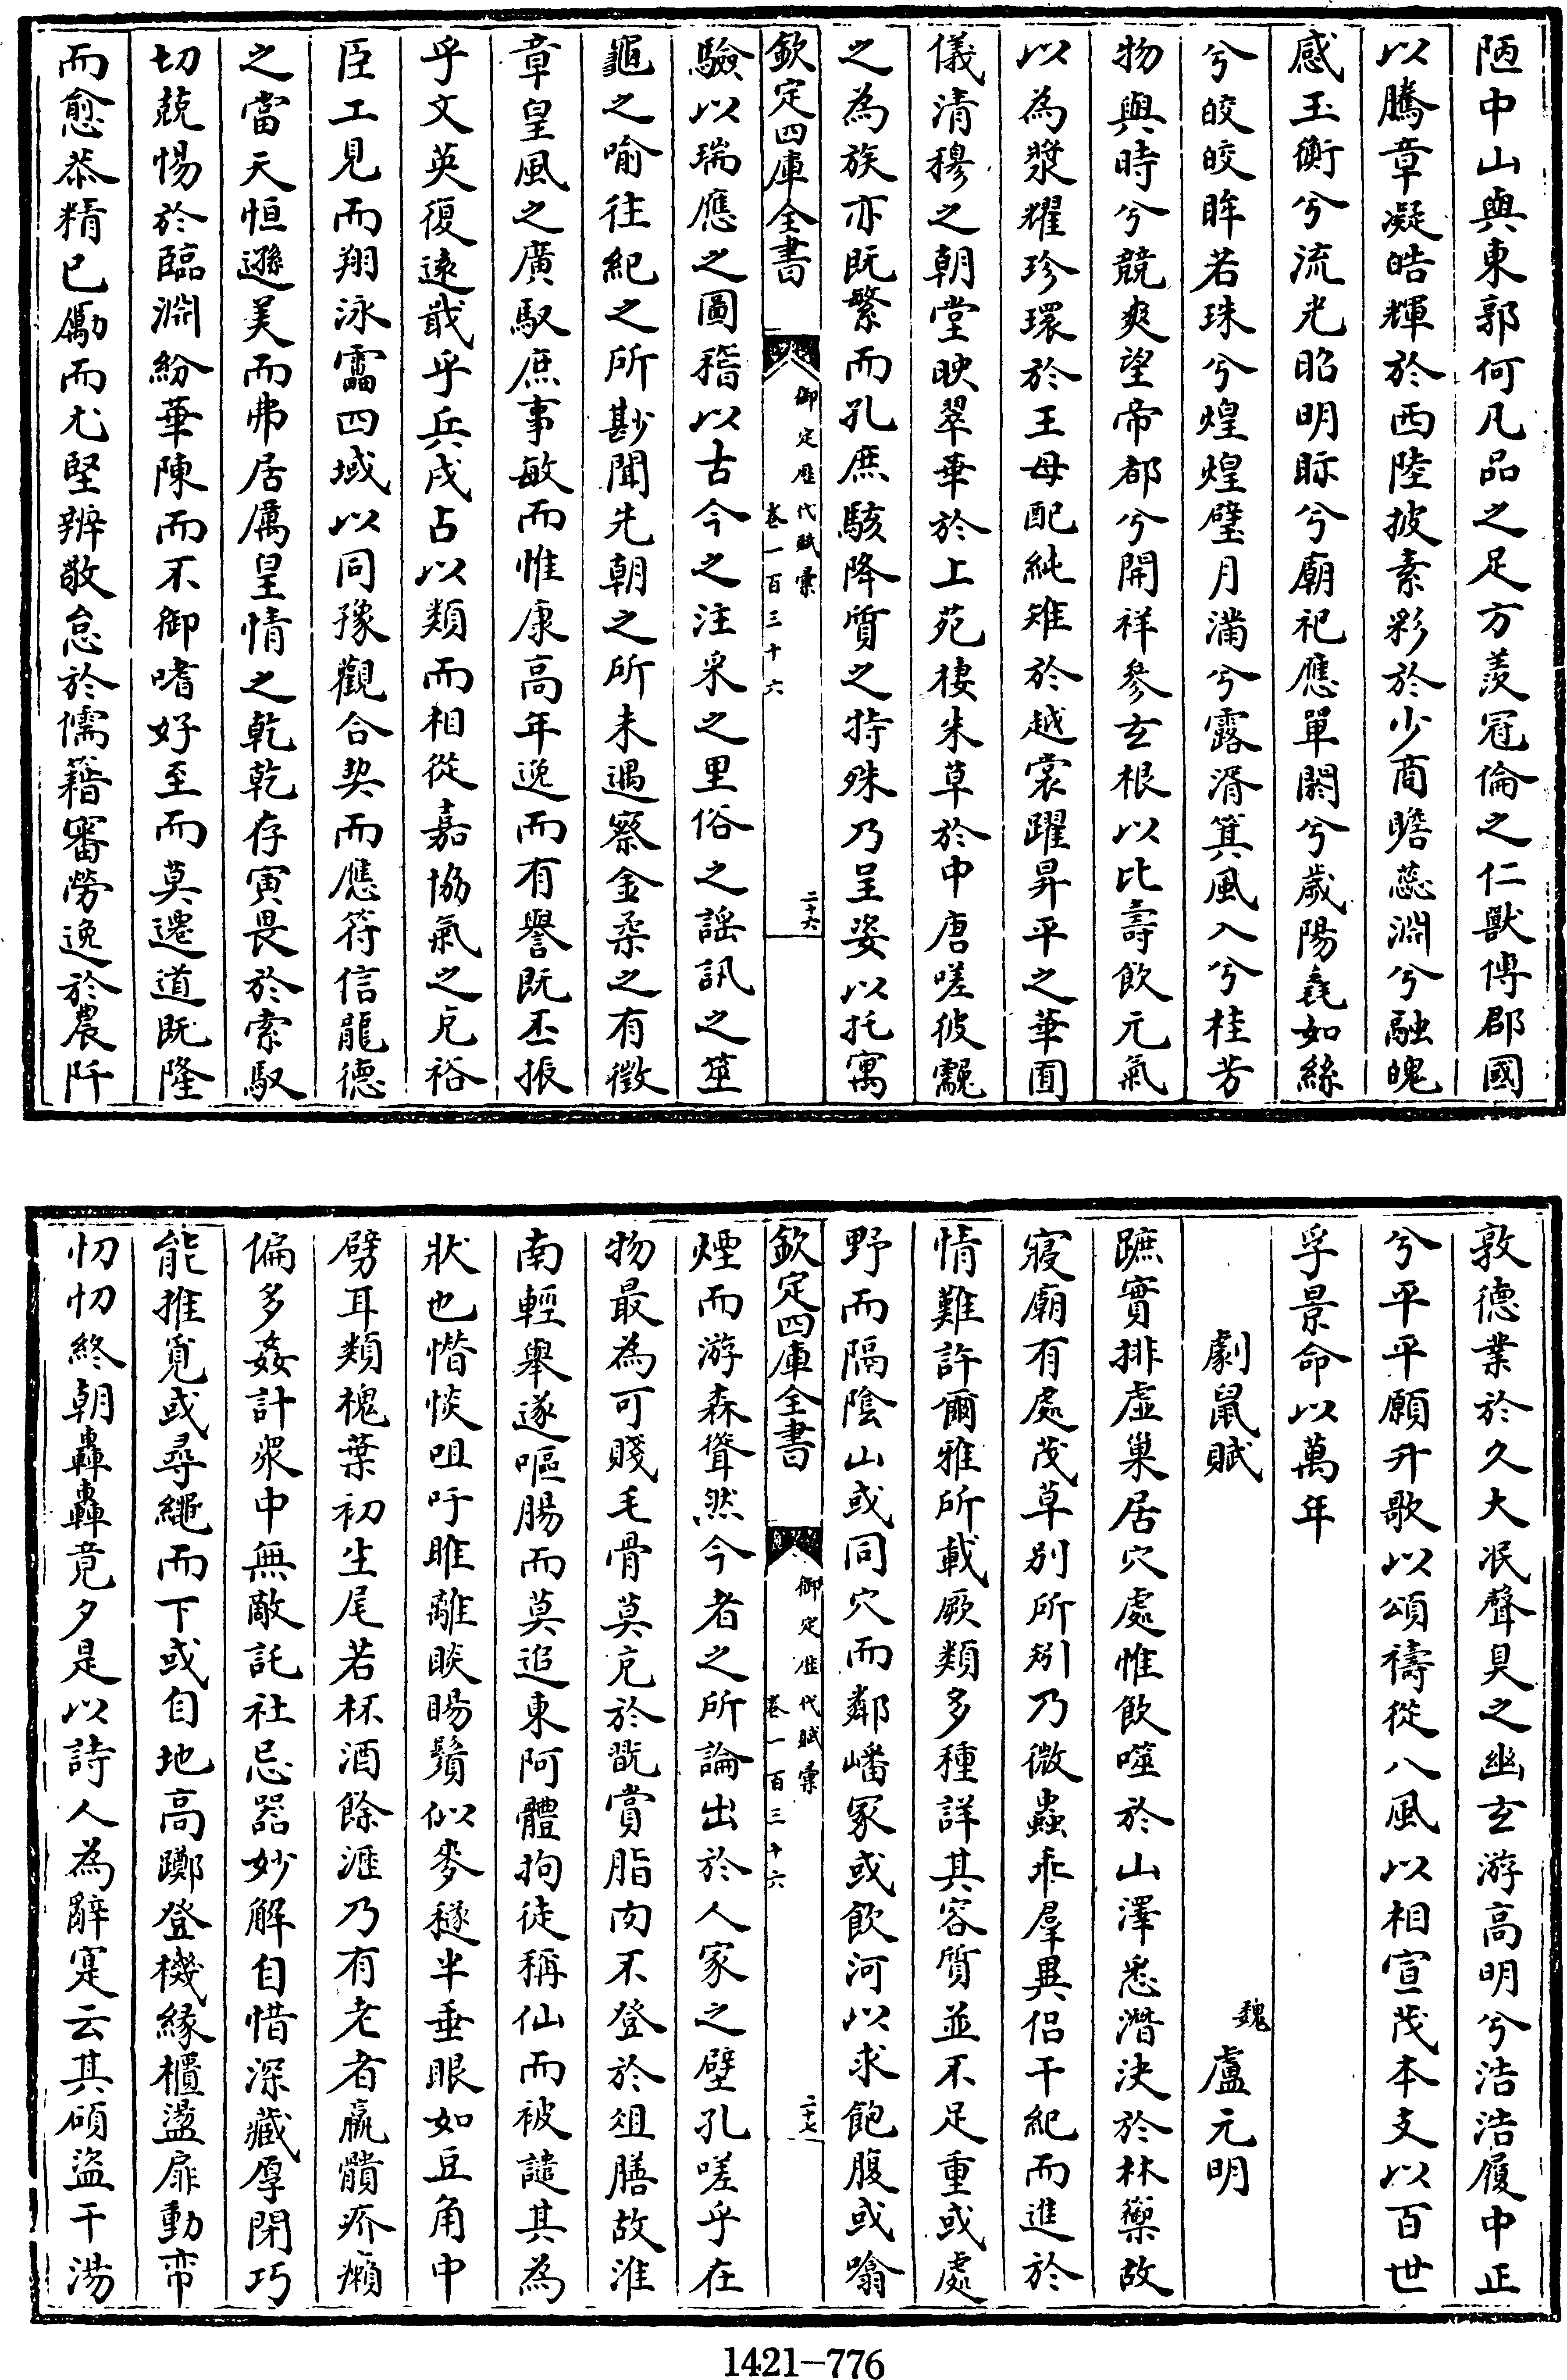 陋中山與東郭何凡品之足方羨冠倫之仁獸傅郡國
以騰章凝皓輝於西陸披素彩於少商瞻蕊淵兮融魄
感玉衡兮流光昭明眎兮廟祀應單閼兮歲陽毳如絲
兮皎皎眸若珠兮煌煌璧月滿兮露湑箕風入兮桂芳
物與時兮競爽望帝都兮開祥參玄根以比壽飲元氣
以為漿耀珍環於王母配純雉於越裳躍昇平之華囿
儀清穆之朝堂映翠華於上苑棲朱草於中唐嗟彼毚
之為族亦既繁而孔庶駭降質之特殊乃呈姿以托寓
欽定四庫全書
御定歷代賦彙
卷一百三十六
二十六
驗以瑞應之圖稽以古今之注采之里俗之謡訊之筮
龜之喻往紀之所尠聞先朝之所未遇察金柔之有徵
章皇風之廣馭庶事敏而惟康高年逸而有譽既丕振
乎文英復遠戢乎兵戍占以類而相從嘉協氣之克裕
臣工見而翔泳霤四域以同豫觀合契而應符信龍德
之當天恒遜美而弗居厲皇情之乾乾存寅畏於索馭
切兢惕於臨淵紛華陳而不御嗜好至而莫遷道既隆
而愈恭精已勵而尤堅辨敬怠於儒籍審勞逸於農阡
敦德業於久大泯聲臭之幽玄游高明兮浩浩履中正
兮平平願升歌以頌禱從八風以相宣茂本支以百世
孚景命以萬年
劇鼠賦
魏 盧元明
蹠實排虛巢居穴處惟飲噬於山澤悉潛決於林禦故
寢廟有處茂草別所矧乃微蟲乖羣異侶干紀而進於
情難許爾雅所載厥類多種詳其容質並不足重或處
野而隔陰山或同穴而鄰嶓冢或飲河以求飽腹或噏
欽定四庫全書
御定歷代賦彙
卷一百三十六
二十七
煙而游森聳然今者之所論出於人家之壁孔嗟乎在
物最為可賤毛骨莫充於翫賞脂肉不登於俎膳故淮
南輕舉遂嘔腸而莫追東阿體拘徒稱仙而被譴其為
狀也憯惔咀吁睢離睒睗鬚似麥穟半垂眼如豆角中
劈耳類槐葉初生尾若杯酒餘瀝乃有老者羸髖疥癩
偏多姦計衆中無敵託社忌器妙解自惜深藏厚閉巧
能推覓或尋繩而下或自地高躑登機緣櫃盪扉動帟
忉忉終朝轟轟竟夕是以詩人為辭寔云其碩盜干湯
1421-776